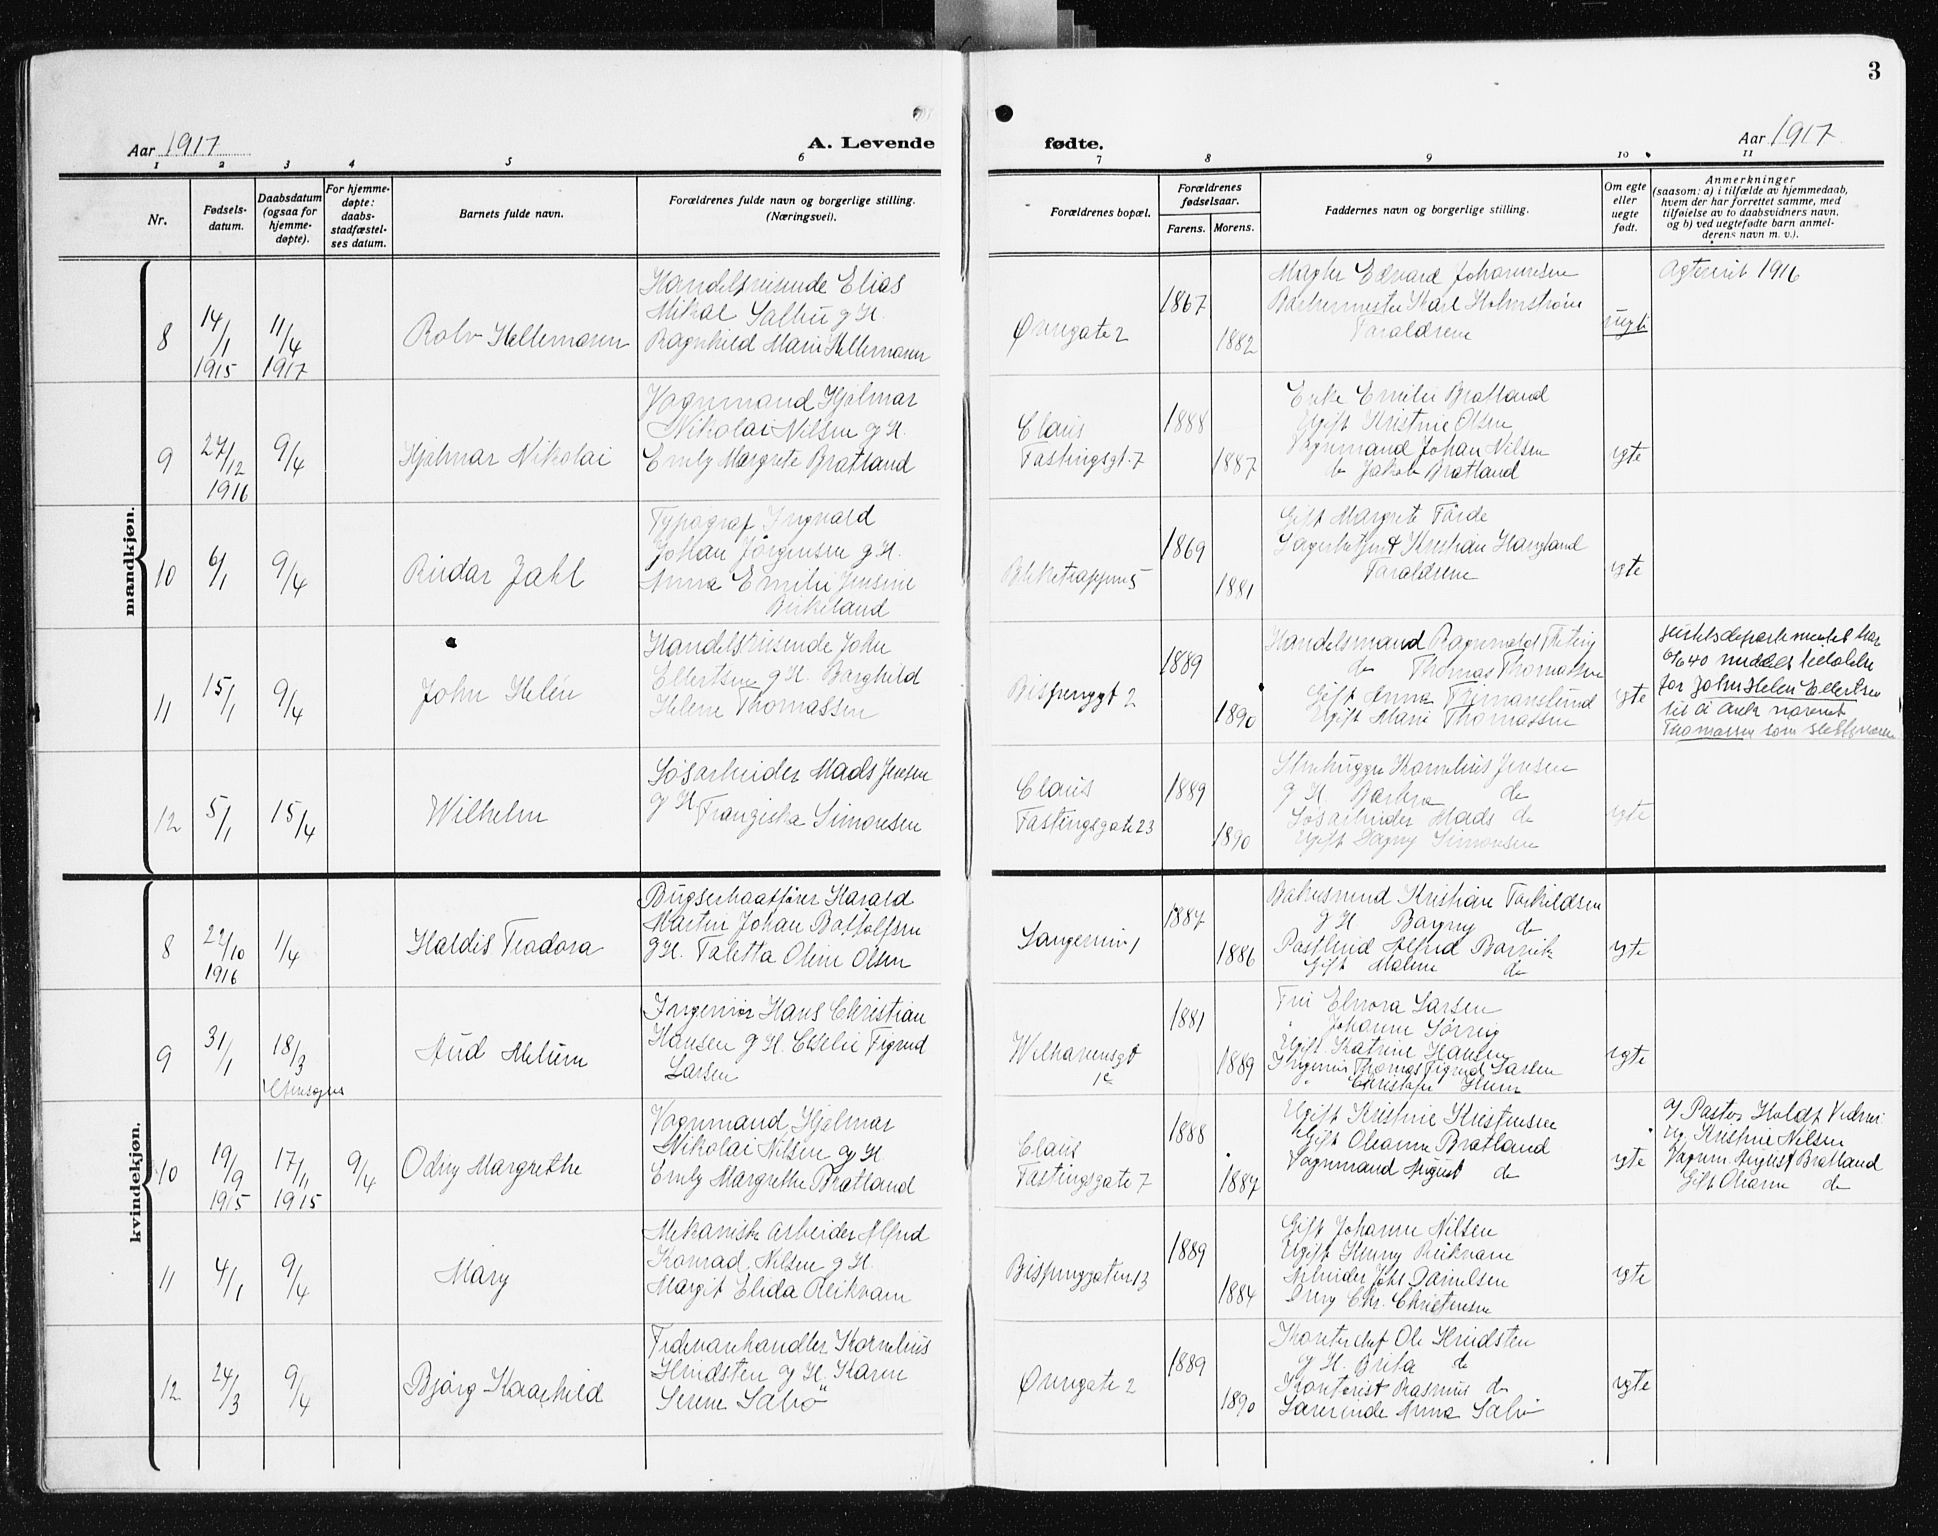 3
Aar 1917
A. Levende
fødte.
Aar 1917
1 2 3 4 5 6 7 8 9 10 11
Nr.
Fødsels-
datum.
Daabsdatum
(ogsaa for
hjemme-
døpte).
For hjemme-
døpte:
daabs-
stadfæstel-
ses datum.
Barnets fulde navn.
Forældrenes fulde navn og borgerlige stilling.
(Næringsvei).
Forældrenes bopæl.
Forældrenes
fødselsaar.
Farens. Morens.
Faddernes navn og borgerlige stilling.
Om egte
eller
uegte
født.
Anmerkninger
(saasom: a) i tilfælde av hjemmedaab,
hvem der har forrettet samme, med
tilføielse av to daabsvidners navn,
og b) ved uegtefødte barn anmel-
derens navn m. v.).
mandkjøn.
8
14/1
1915
11/4
1917
Rolv Hellemann
Handelsreisende Elias
Mikal Salhu g H.
Ragnhild Marie Hellemann
Øvregate 2
1867
1882
Mægler Edvard Johannesen
Barbermester Karl Holmstrøm
Foraldrene
uegte
Agterskt 1916
9
27/12
1916
9/4
Hjalmar Nikolai
Vognmand Hjalmar
Nikolai Nilsen g H.
Emly Margrete Bratland
Claus
Fastingsgt. 7
1888
1887
Enke Emilie Bratland
Ugift Kristine Olsen
Vognmand Johan Nilsen
do Jakob Bratland
egte
10
6/1
9/4
Reidar Jahl
Typograf Ingvald
Johan Jørgensen g H.
Anna Emilie Jensine
Birkeland
Blekketrappen 5
1869
1881
Gift Margrete Førde
Lagerbetjent Kristian Haugland
Foraldrene
egte
11
15/1
9/4
John Helén
Handelsreisende John
Ellertsen g H. Borghild
Helene Thomassen
Bispenggt 2
1889
1890
Handelsmand Ragnvald
do Thomas Thomassen
Gift Anna
Ugift Marie Thomassen
egte
Justisdepartementet har
6/6 40 meddelt tillatelse
for John Helen Ellertsen
til å anta navnet
Thomassen som slektsnavn
12
5/1
15/4
Wilhelm
Løsarbeider Mads Jensen
g H. Franziska Simonsen
Claus
Fastingsgate 23
1889
1890
Stenhugger Kornelius Jensen
g H. Barbra do
Løsarbeider Mads do
Ugift Dagny Simonsen
egte
kvindekjøn.
8
22/10
1916
1/4
Haldis Teodora
Bugserbaatfører Harald
Martin Johan Botholfsen
g H. Taletta Oline Olsen
1887
1886
Kristian Torkildsen
g H Bargny do
Alfred
Gift Malene do
egte
9
31/1
18/3
Aud Melum
Ingeniør Hans Christian
Hansen g H. Cecelie Figved
Larsen
1881
1889
Fru Elnora Larsen
" Johanne
Ugift Katrine Hansen
Ingeniør Thomas Figved Larsen
" Christofer
egte
10
19/9
1915
17/11
1915
9/4
Odny Margrethe
Vognmand Hjalmar
Nikolai Nilsen g H
Emly Margrethe Bratland
Claus
Fastingsgate 7
1888
1887
Ugift Kristine Kristensen
Gift Oleanna Bratland
Vognmand August do
egte
af Pastor Holdt
Ug. Kristine Nilsen
Vognm August Bratland
Gift Oleanne do
11
4/1
9/4
Mary
Mekanisk Arbeider Alfred
Konrad Nilsen g H.
Margit Elida Reikvam
Bispenggaten 13
1889
1884
Gift Johanne Nilsen
Ugift Henny Reikvam
Arbeider Johs Danielsen
Chr. Christensen
egte
12
24/3
9/4
Bjørg Kaarhild
Fedevarehandler Kornelius
Hindsten g H. Karen
Serene Sabø
Øvregate 2
1889
1890
Kontorchef Ole Hindsten
g H. Brita do
Kontorist Rasmus do
Lærerinde Anna Sabø
egte